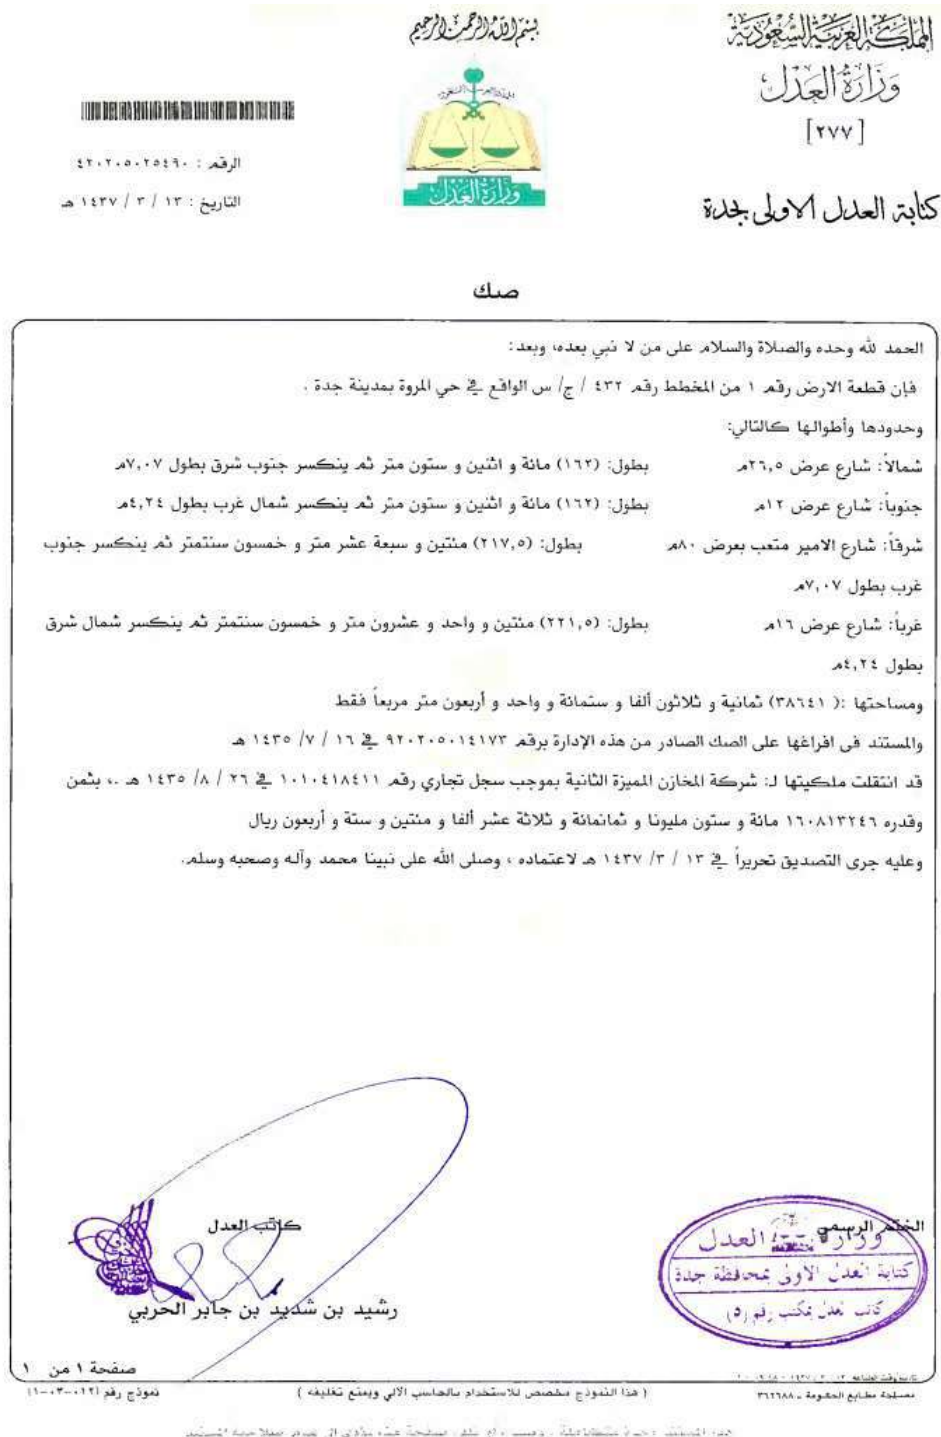 المملكة العربية السعودية
وزارة العدل
[٢٧٧]
كتابة العدل الاولى بجدة
بسم الله الرحمن الرحيم
وزارة العدل
الرقم : ٤٢٠٢٠٥٠٢٥٤٩٠
التاريخ : ١٣ / ٣ / ١٤٣٧ هـ
صك
الحمد لله وحده والصلاة والسلام على من لا نبي بعده، وبعد:
فإن قطعة الارض رقم ١ من المخطط رقم ٤٣٢ / ج/ س الواقع في حي المروة بمدينة جدة .
وحدودها وأطوالها كالتالي:
شمالاً: شارع عرض ٢٦,٥م بطول: (١٦٢) مائة و اثنين و ستون متر ثم ينكسر جنوب شرق بطول ٧,٠٧م
جنوباً: شارع عرض ١٢م بطول: (١٦٢) مائة و اثنين و ستون متر ثم ينكسر شمال غرب بطول ٤,٢٤م
شرقاً: شارع الامير متعب بعرض ٨٠م بطول: (٢١٧,٥) مئتين و سبعة عشر متر و خمسون سنتمتر ثم ينكسر جنوب
غرب بطول ٧,٠٧م
غرباً: شارع عرض ١٦م بطول: (٢٢١,٥) مئتين و واحد و عشرون متر و خمسون سنتمتر ثم ينكسر شمال شرق
بطول ٤,٢٤م
ومساحتها :( ٣٨٦٤١) ثمانية و ثلاثون ألفا و ستمائة و واحد و أربعون متر مربعاً فقط
والمستند في افراغها على الصك الصادر من هذه الإدارة برقم ٩٢٠٢٠٥٠١٤١٧٣ في ١٦ / ٧/ ١٤٣٥ هـ
قد انتقلت ملكيتها لـ: شركة المخازن المميزة الثانية بموجب سجل تجاري رقم ١٠١٠٤١٨٤١١ في ٢٦ / ٨/ ١٤٣٥ هـ .، بثمن
وقدره ١٦٠٨١٣٢٤٦ مائة و ستون مليونا و ثمانمائة و ثلاثة عشر ألفا و مئتين و ستة و أربعون ريال
وعليه جرى التصديق تحريراً في ١٣ / ٣/ ١٤٣٧ هـ لاعتماده ، وصلى الله على نبينا محمد وآله وصحبه وسلم.
الختم الرسمي
كاتب العدل
وزارة العدل
كتابة العدل الاولى بمحافظة جدة
كاتب العدل بمكتب رقم (٥)
رشيد بن شديد بن جابر الحربي
صفحة ١ من ١
مصلحة مطابع الحكومة - ٣٦٢٦٨٨
( هذا النموذج مخصص للاستخدام بالحاسب الآلي ويمنع تغليفه )
نموذج رقم (١٢-٠٣-٠١)